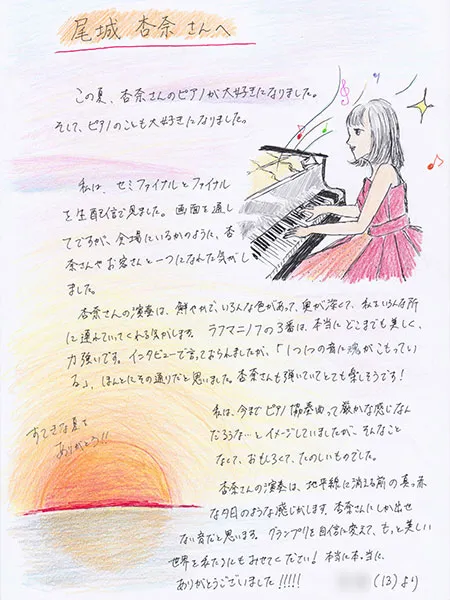 尾城 杏奈 さんへ
この夏、杏奈さんのピアノが大好きになりました。
そして、ピアノのことも大好きになりました。
私は、セミファイナルとファイナル
を生配信で見ました。画面を通し
てですが、会場にいるかのように、杏
奈さんやお客さんと一つになれた気がし
ました。
杏奈さんの演奏は、鮮やかで、いろんな色があって、奥が深くて、私をいろんな所
に連れていってくれる気がします。ラフマニノフの3番は、本当にどこまでも美しく、
力強いです。インタビューで言っておられましたが、「1つ1つの音に魂がこもってい
る」、ほんとにその通りだと思いました。杏奈さんも弾いていてとても楽しそうです!
すてきな夏を
ありがとう!!
私は、今までピアノ協奏曲って厳かな感じなん
だろうな…とイメージしていましたが、そんなこと
なくて、おもしろくて、たのしいものでした。
杏奈さんの演奏は、地平線に消える前の真っ赤
な夕日のような感じがします。杏奈さんにしか出せ
ない音だと思います。グランプリを自信に変えて、もっと美しい
世界を私たちにもみせてください!本当に本・当に、
ありがとうございました!!!!!
(13)より